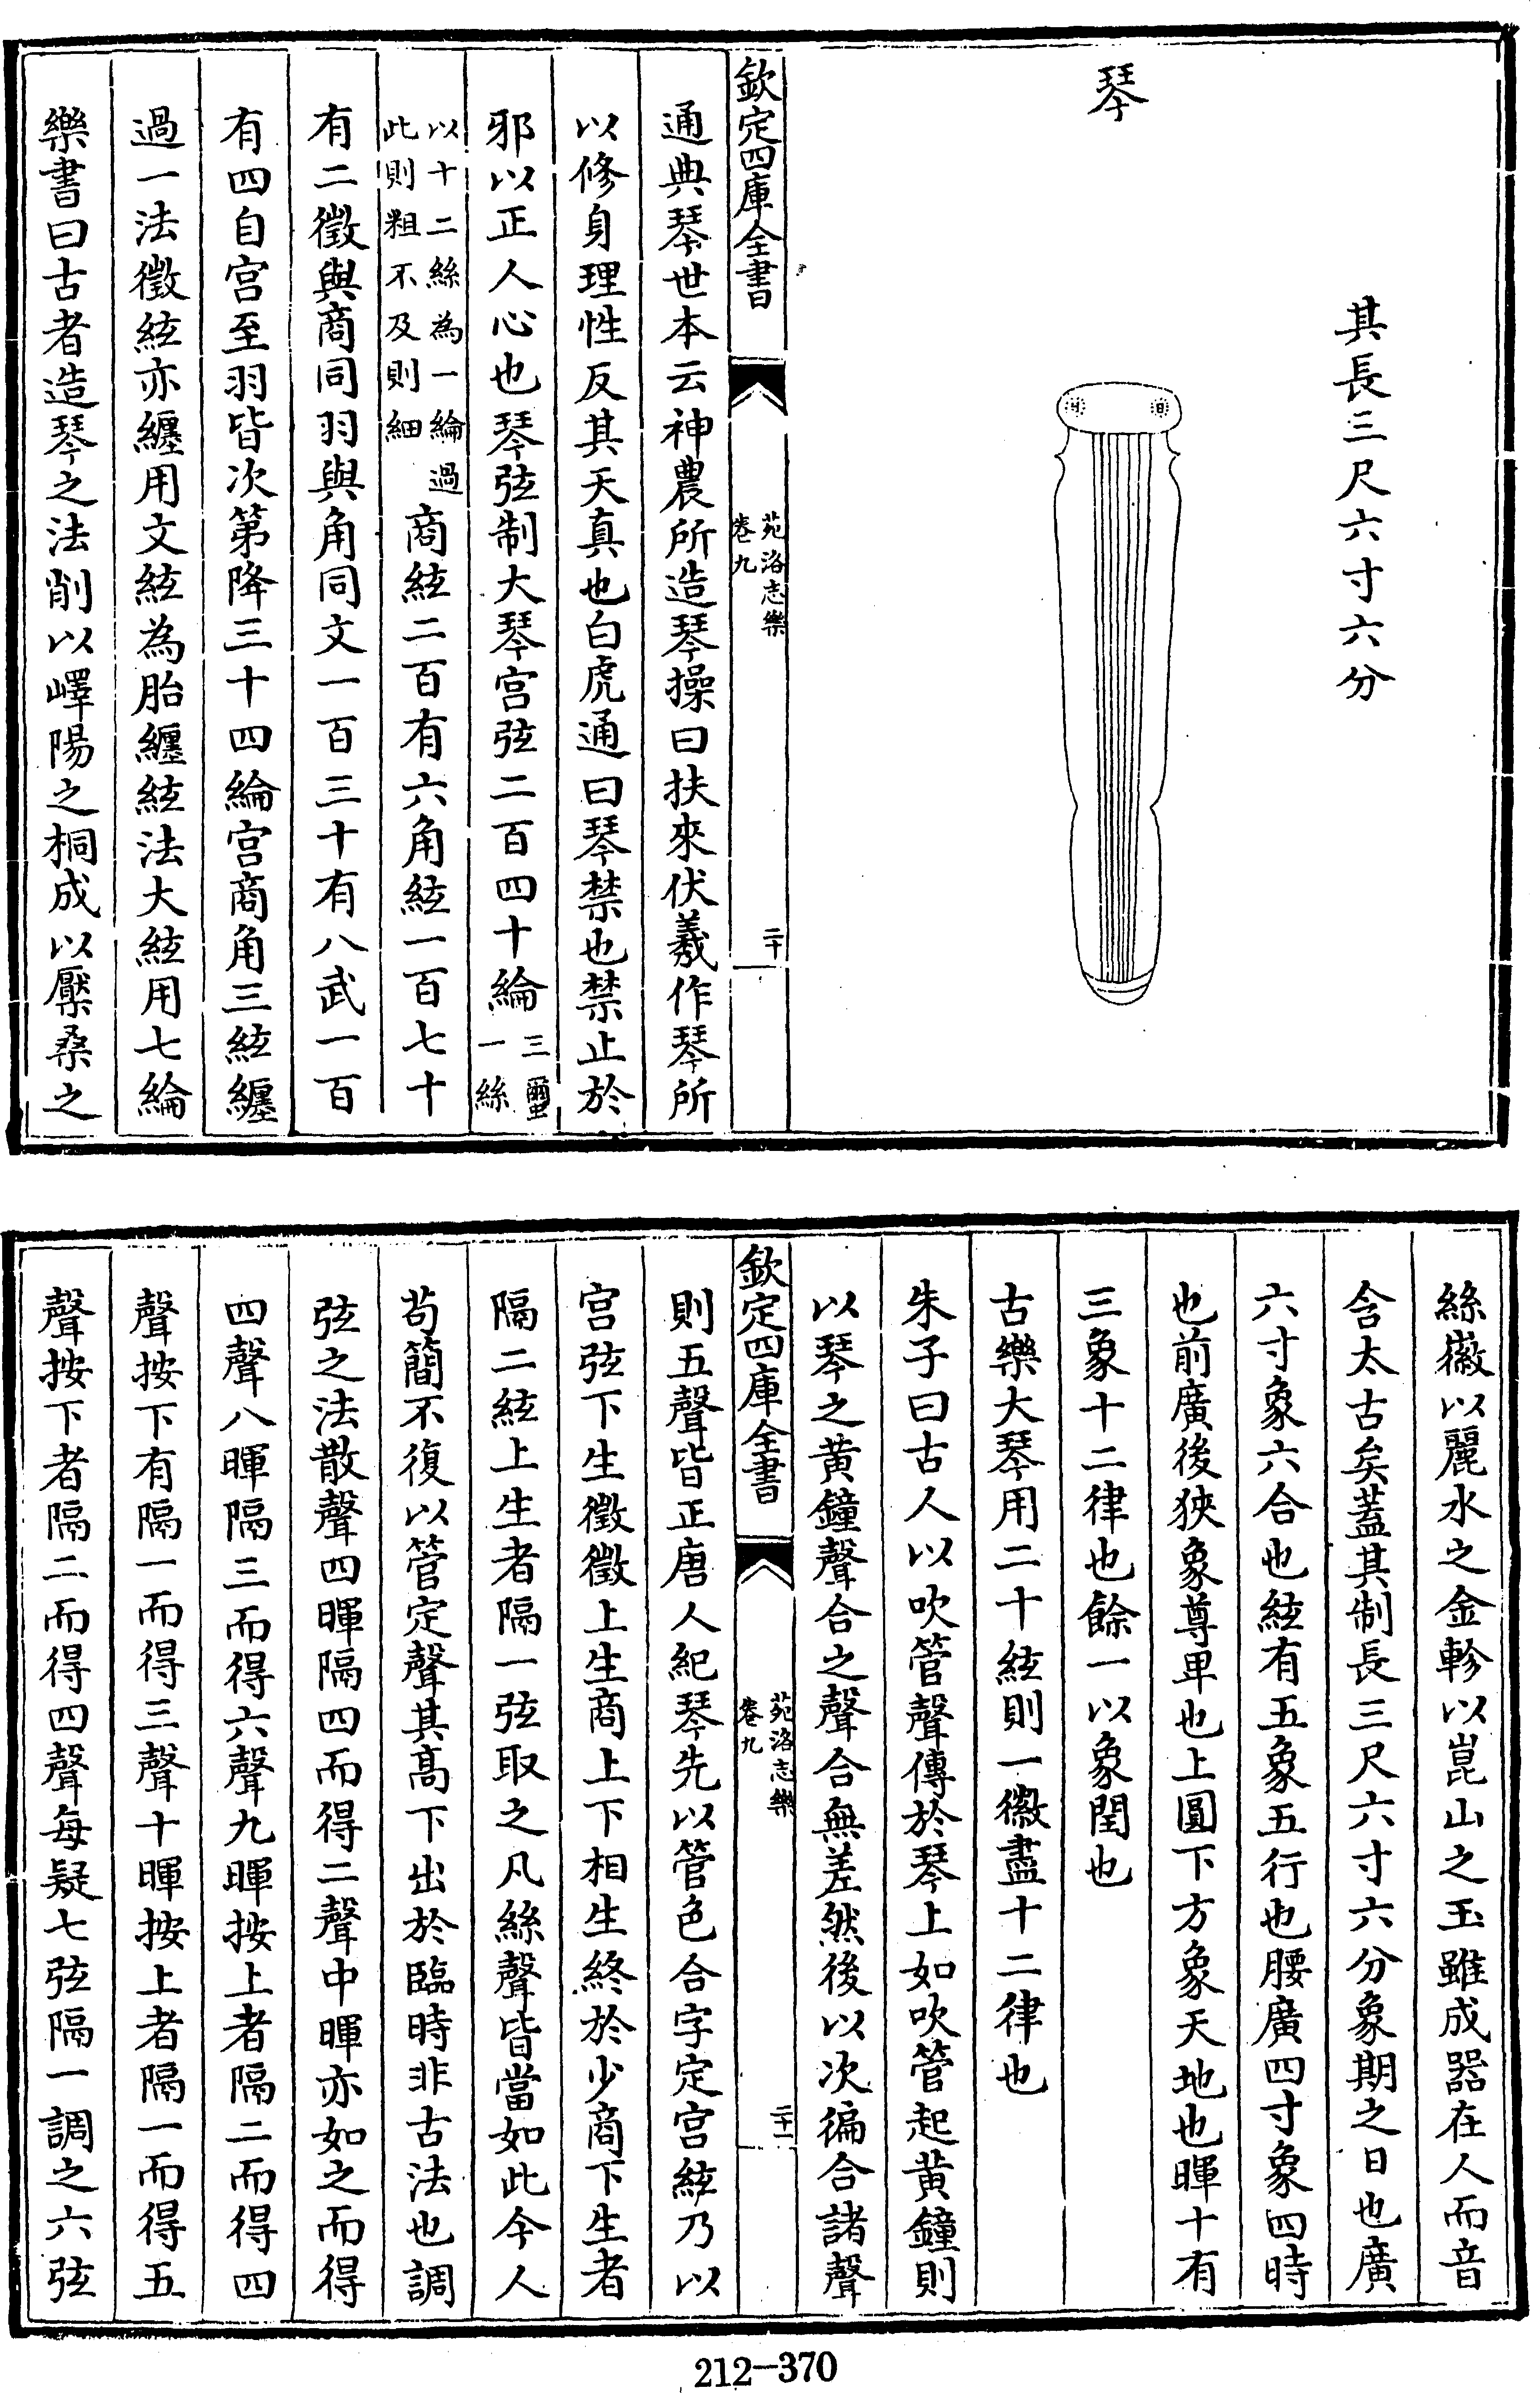 琴
其長三尺六寸六分
欽定四庫全書
苑洛志樂
卷九
二十
通典琴世本云神農所造琴操曰扶來伏羲作琴所
以修身理性反其天真也白虎通曰琴禁也禁止於
邪以正人心也琴弦制大琴宫弦二百四十綸三𮈔
一絲
以十二絲為一綸過
此則粗不及則細
商絃二百有六角絃一百七十
有二徵與商同羽與角同文一百三十有八武一百
有四自宫至羽皆次第降三十四綸宫商角三絃纏
過一法徵絃亦纏用文絃為胎纏絃法大絃用七綸
樂書曰古者造琴之法削以嶧陽之桐成以檿桑之
絲徽以麗水之金軫以崑山之玉雖成器在人而音
含太古矣蓋其制長三尺六寸六分象期之日也廣
六寸象六合也絃有五象五行也腰廣四寸象四時
也前廣後狹象尊卑也上圓下方象天地也暉十有
三象十二律也餘一以象閏也
古樂大琴用二十絃則一徽盡十二律也
朱子曰古人以吹管聲傳於琴上如吹管起黄鐘則
以琴之黄鐘聲合之聲合無差然後以次徧合諸聲
欽定四庫全書
苑洛志樂
卷九
二十一
則五聲皆正唐人紀琴先以管色合字定宫絃乃以
宫弦下生徵徵上生商上下相生終於少商下生者
隔二絃上生者隔一弦取之凡絲聲皆當如此今人
苟簡不復以管定聲其髙下出於臨時非古法也調
弦之法散聲四暉隔四而得二聲中暉亦如之而得
四聲八暉隔三而得六聲九暉按上者隔二而得四
聲按下有隔一而得三聲十暉按上者隔一而得五
聲按下者隔二而得四聲每疑七弦隔一調之六弦
212-370